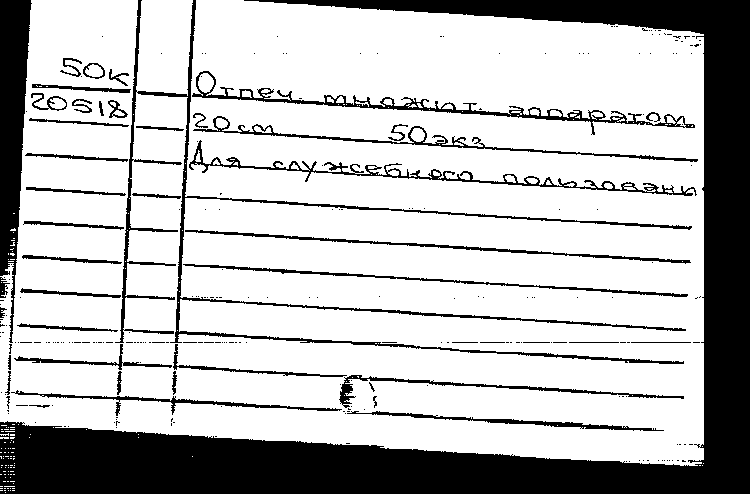 50к Отпеч. множит. аппаратом
20518 20см 50экз
Для служебного пользовани